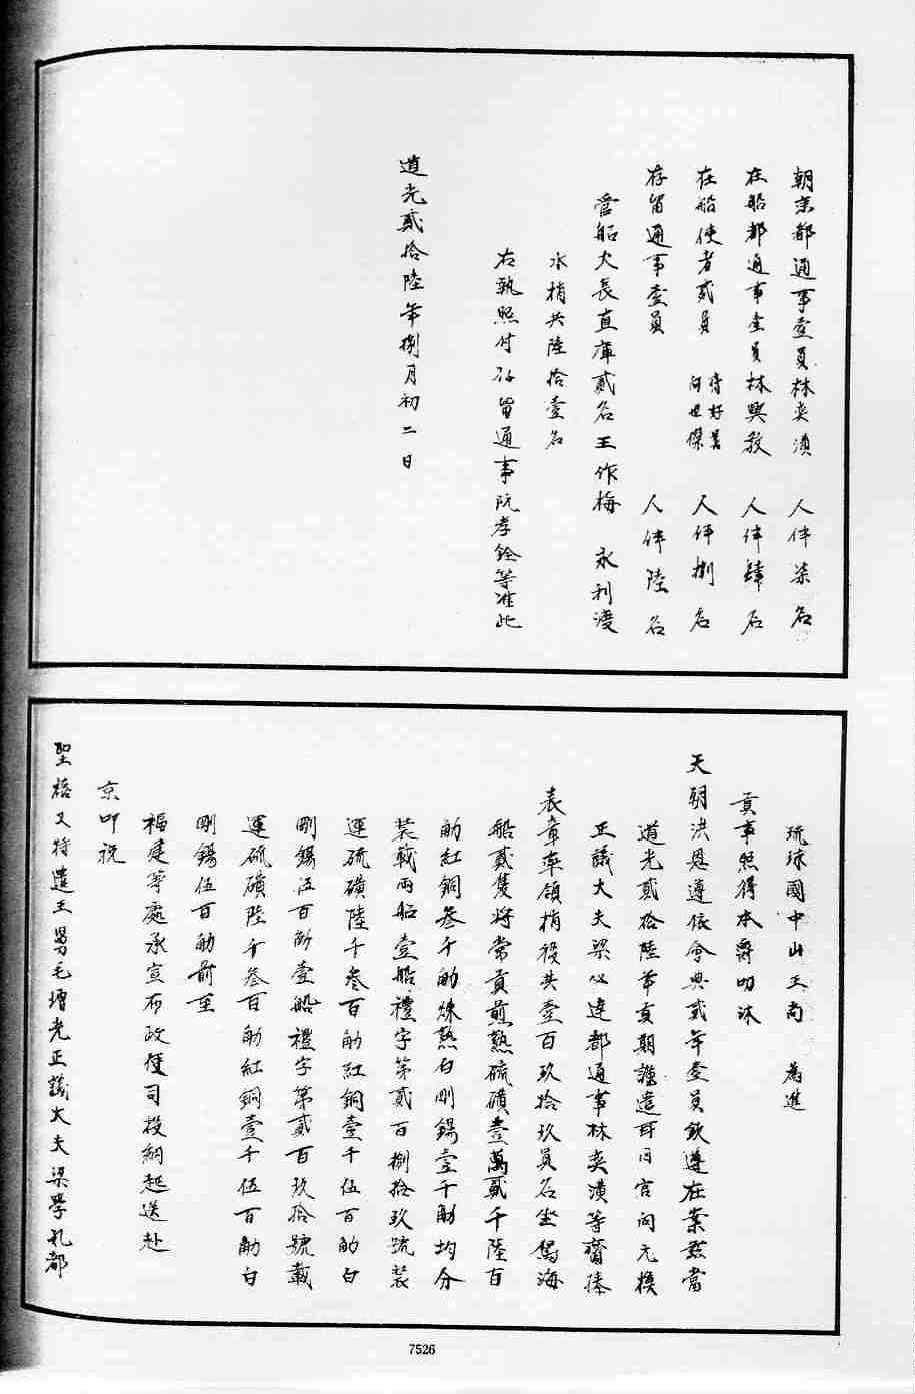 朝京都通事壹員林奕濆 人伴柒名
在船都通事壹員林興教 人伴肆名
在船使者貳員 向世傑 人伴捌名
存留通事壹員 人伴陸名
管船火長直庫貳名王作梅 永利渡
水梢共陸拾壹名
右執照付存留通事阮孝銓等准此
道光貳拾陸年捌月初二日
琉球國中山王尚 為進
貢事照得本爵叨沐
天朝洪恩遵依會典貳年壹貢欽遵在案茲當
道光貳拾陸年貢期謹遣耳目官向元模
正議大夫梁必達都通事林奕濆等齎捧
表章率領梢役共壹百玖拾玖員名坐駕海
船貳隻將常貢煎熟硫磺壹萬貳千陸百
觔紅銅叁千觔煉熟白剛錫壹千觔均分
裝載兩船壹船禮字第貳百捌拾玖號裝
運硫磺陸千叁百觔紅銅壹千伍百觔白
剛錫伍百觔壹船禮字第貳百玖拾號載
運硫磺陸千叁百觔紅銅壹千伍百觔白
剛錫伍百觔前至
福建等處承宣布政使司投納起送赴
京叩祝
聖禧又特遣王舅毛增光正議大夫梁學孔都
7526